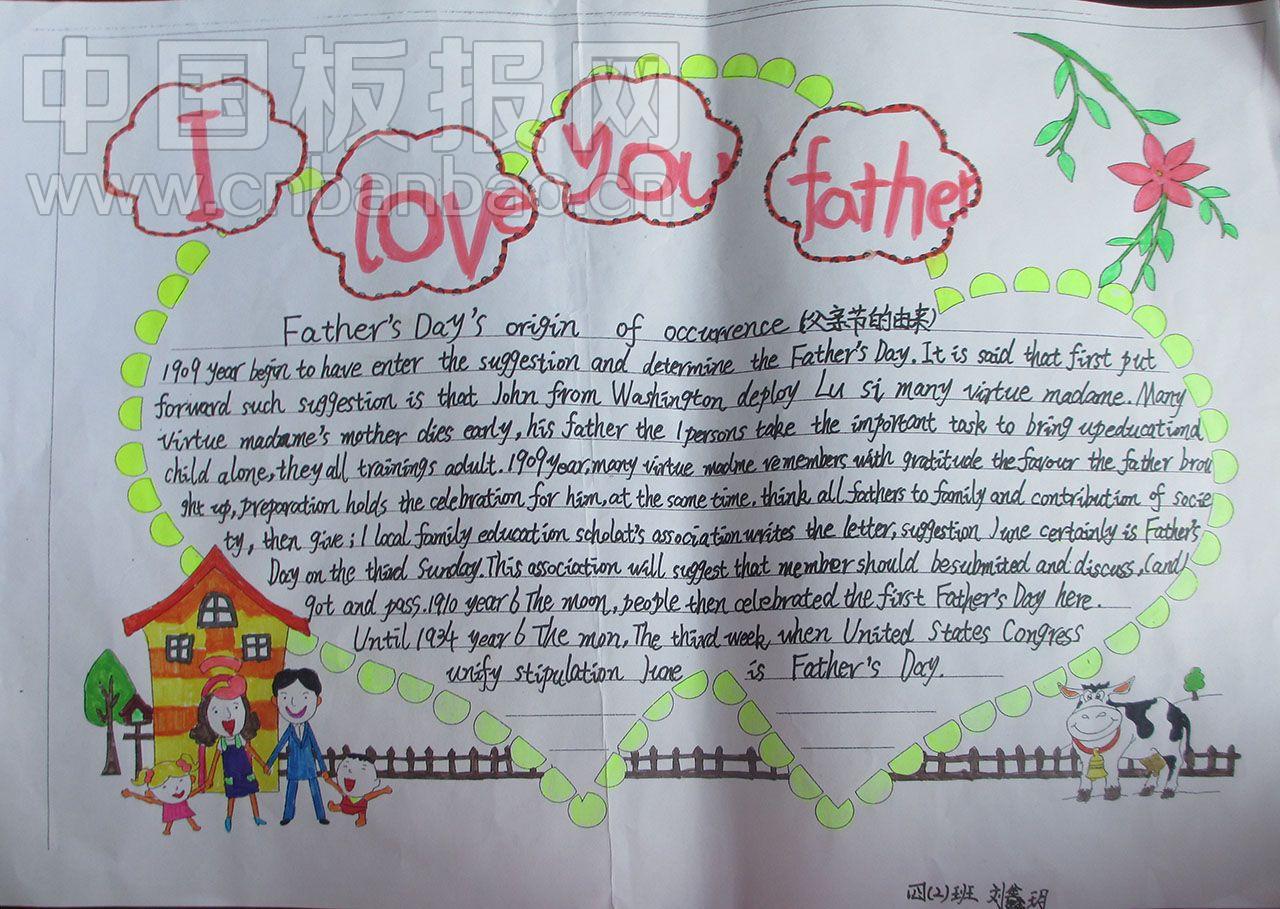 中国板报网
www.cnbanbao.cn
I love you father
Father's Day's origin of occurrence (父亲节的由来)
1909 year begin to have enter the suggestion and determine the Father's Day. It is said that first put
forward such suggestion is that John from Washington deploy Lu si many virtue madame. Many
virtue madame's mother dies early, his father the 1 persons take the important task to bring up educationd
child alone, they all trainings adult. 1909 year, many virtue madme remembers with gratitude the favour the father brou
ght up, preparation holds the celebration for him, at the same time, think all fathers to family and contribution of socie
ty, then give; 1 local family education scholat's association writes the letter, suggestion June certainly is Father's
Day on the third Sunday. This association will suggest that member should be submited and discuss, (and)
got and pass. 1910 year 6 The moon, people then celebrated the first Father's Day here.
Until 1934 year 6 The mon, The third week when United States Congress
unify stipulation June is Father's Day.
四(2)班 刘鑫玥